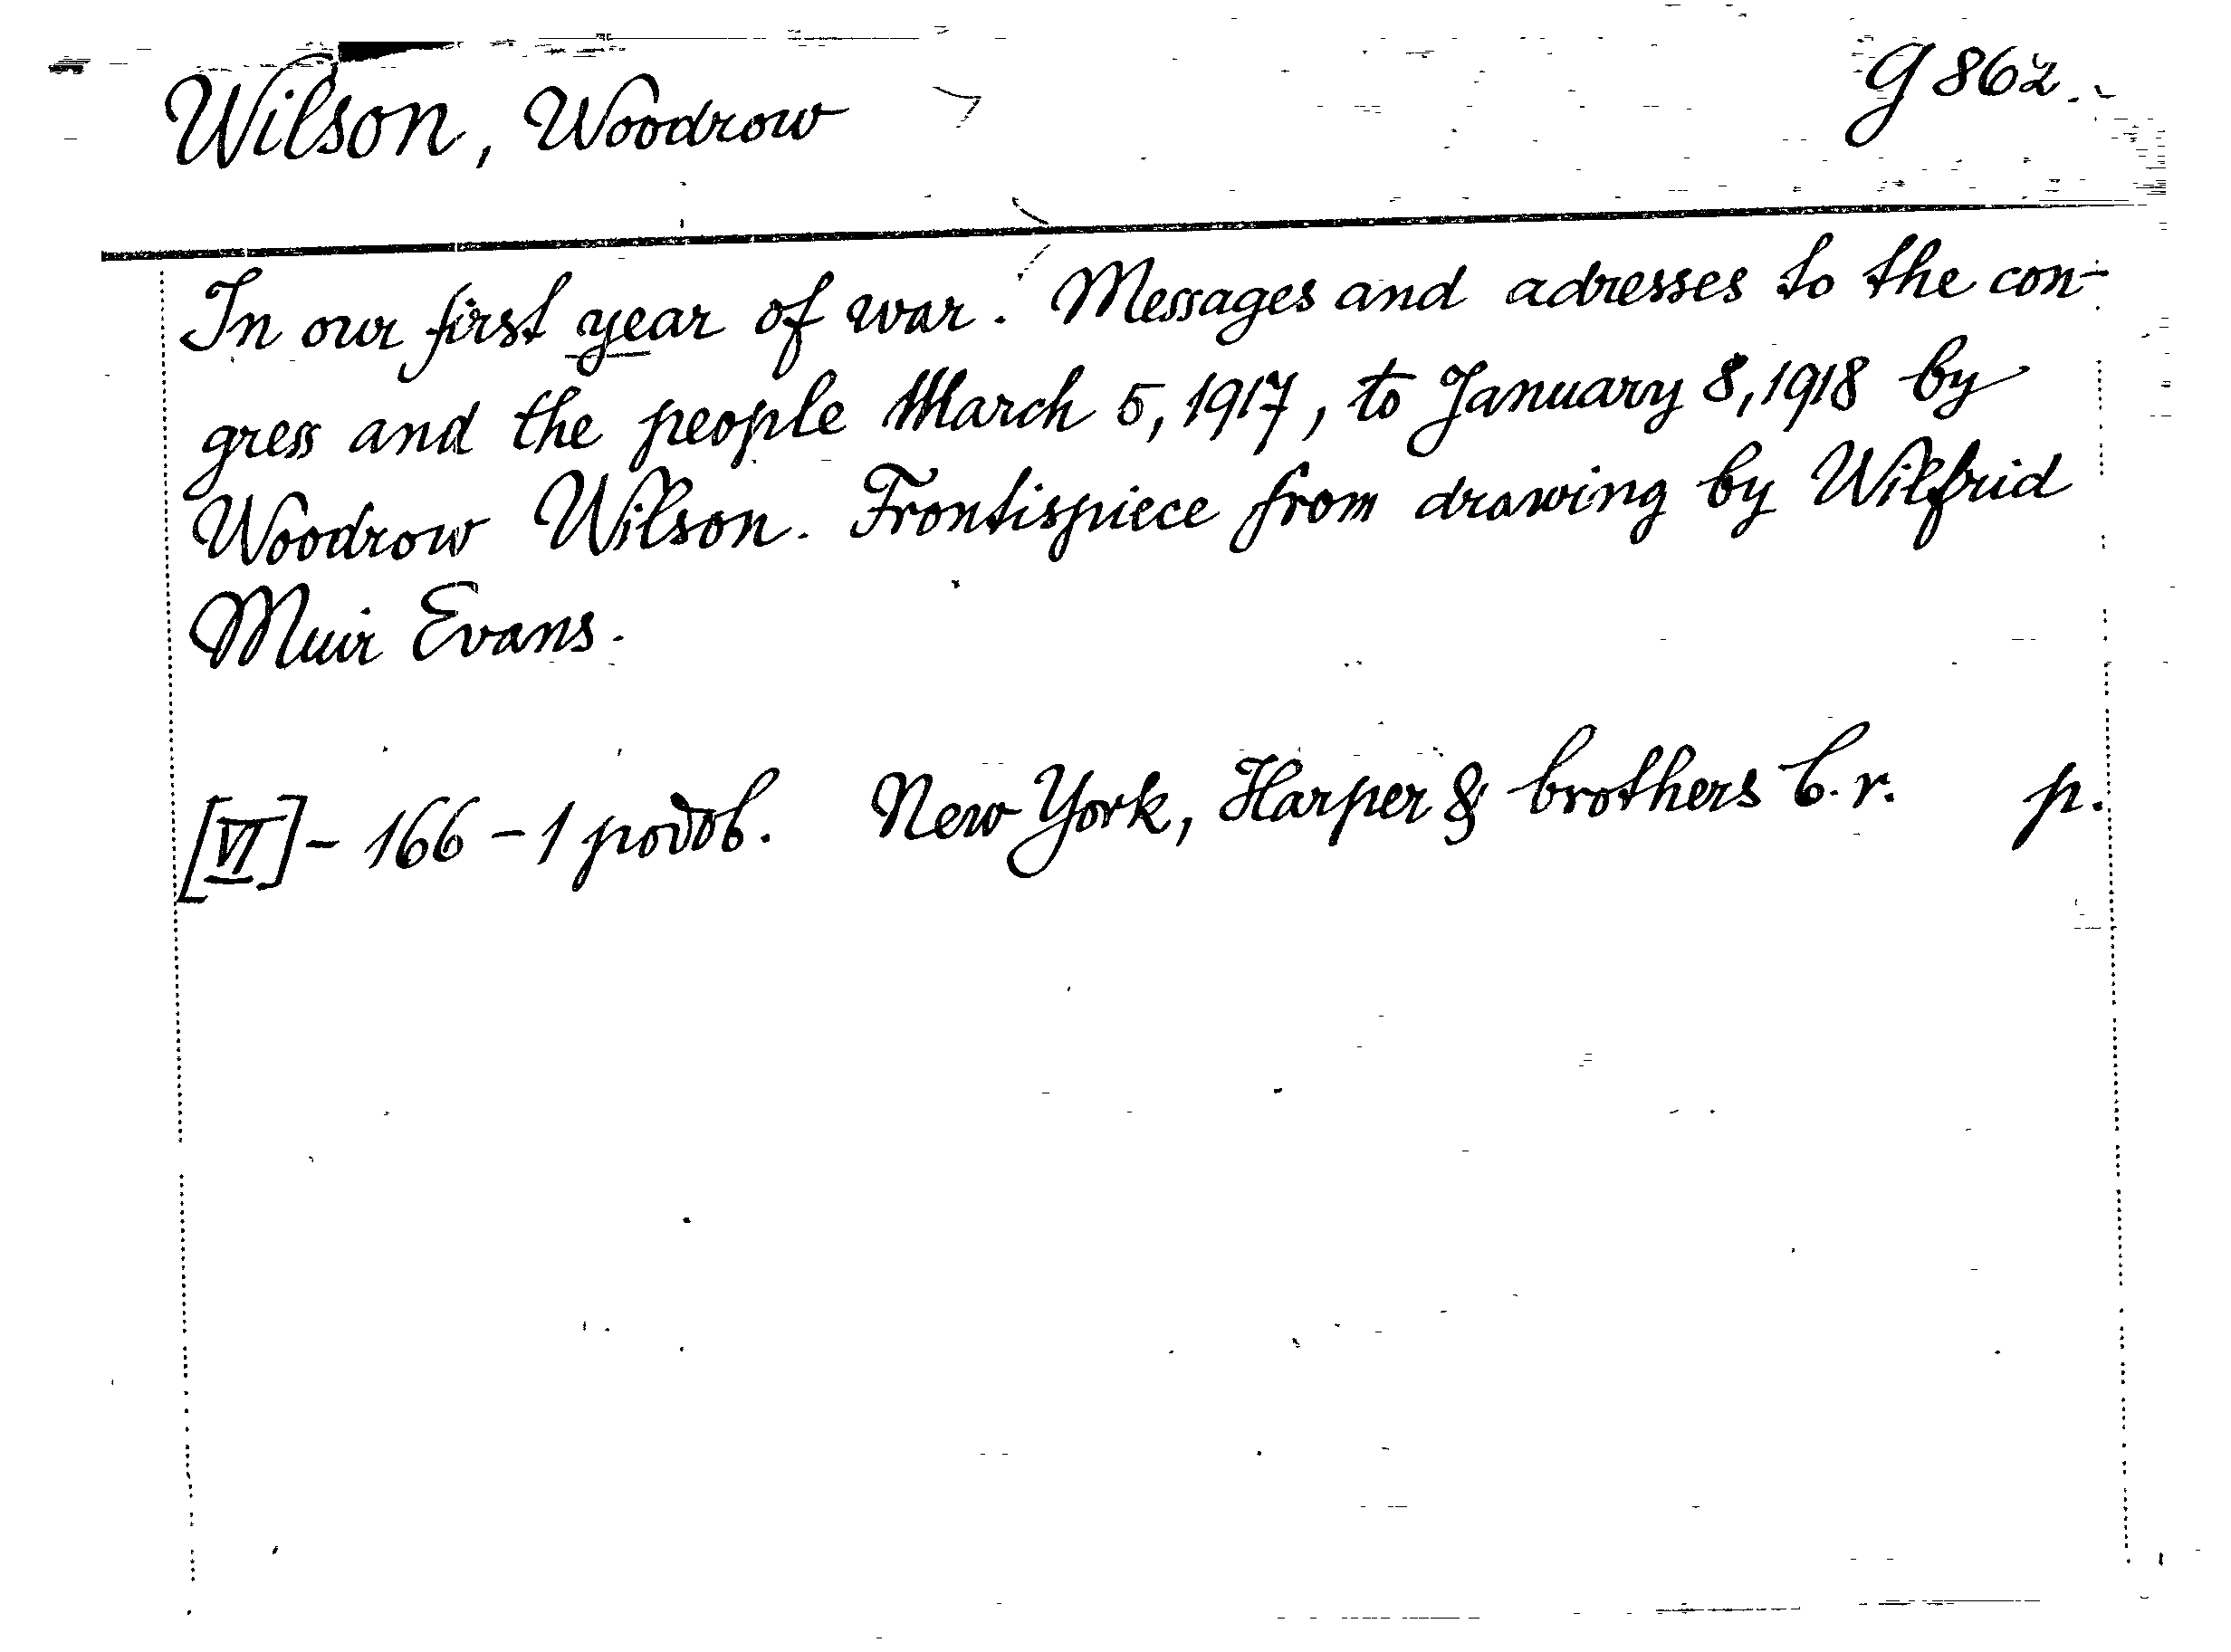 Wilson, Woodrow g 862.
In our first year of war. Messages and adresses to the con-
gress and the people March 5, 1917, to January 8, 1918 by
Woodrow Wilson. Frontispiece from drawing by Wilfrid
Muir Evans.
[VI] - 166 - 1 podob. New York, Harper & brothers b. r. p.